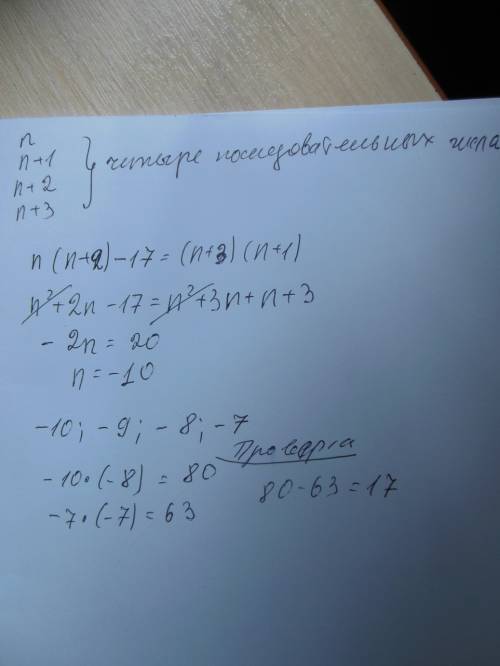 n
n+1
n+2
n+3
} четыре последовательных числа
n(n+2)-17=(n+3)(n+1)
n²+2n-17=n²+3n+n+3
-2n=20
n=-10
-10; -9; -8; -7
Проверка
-10·(-8)=80
80-63=17
-7·(-7)=63